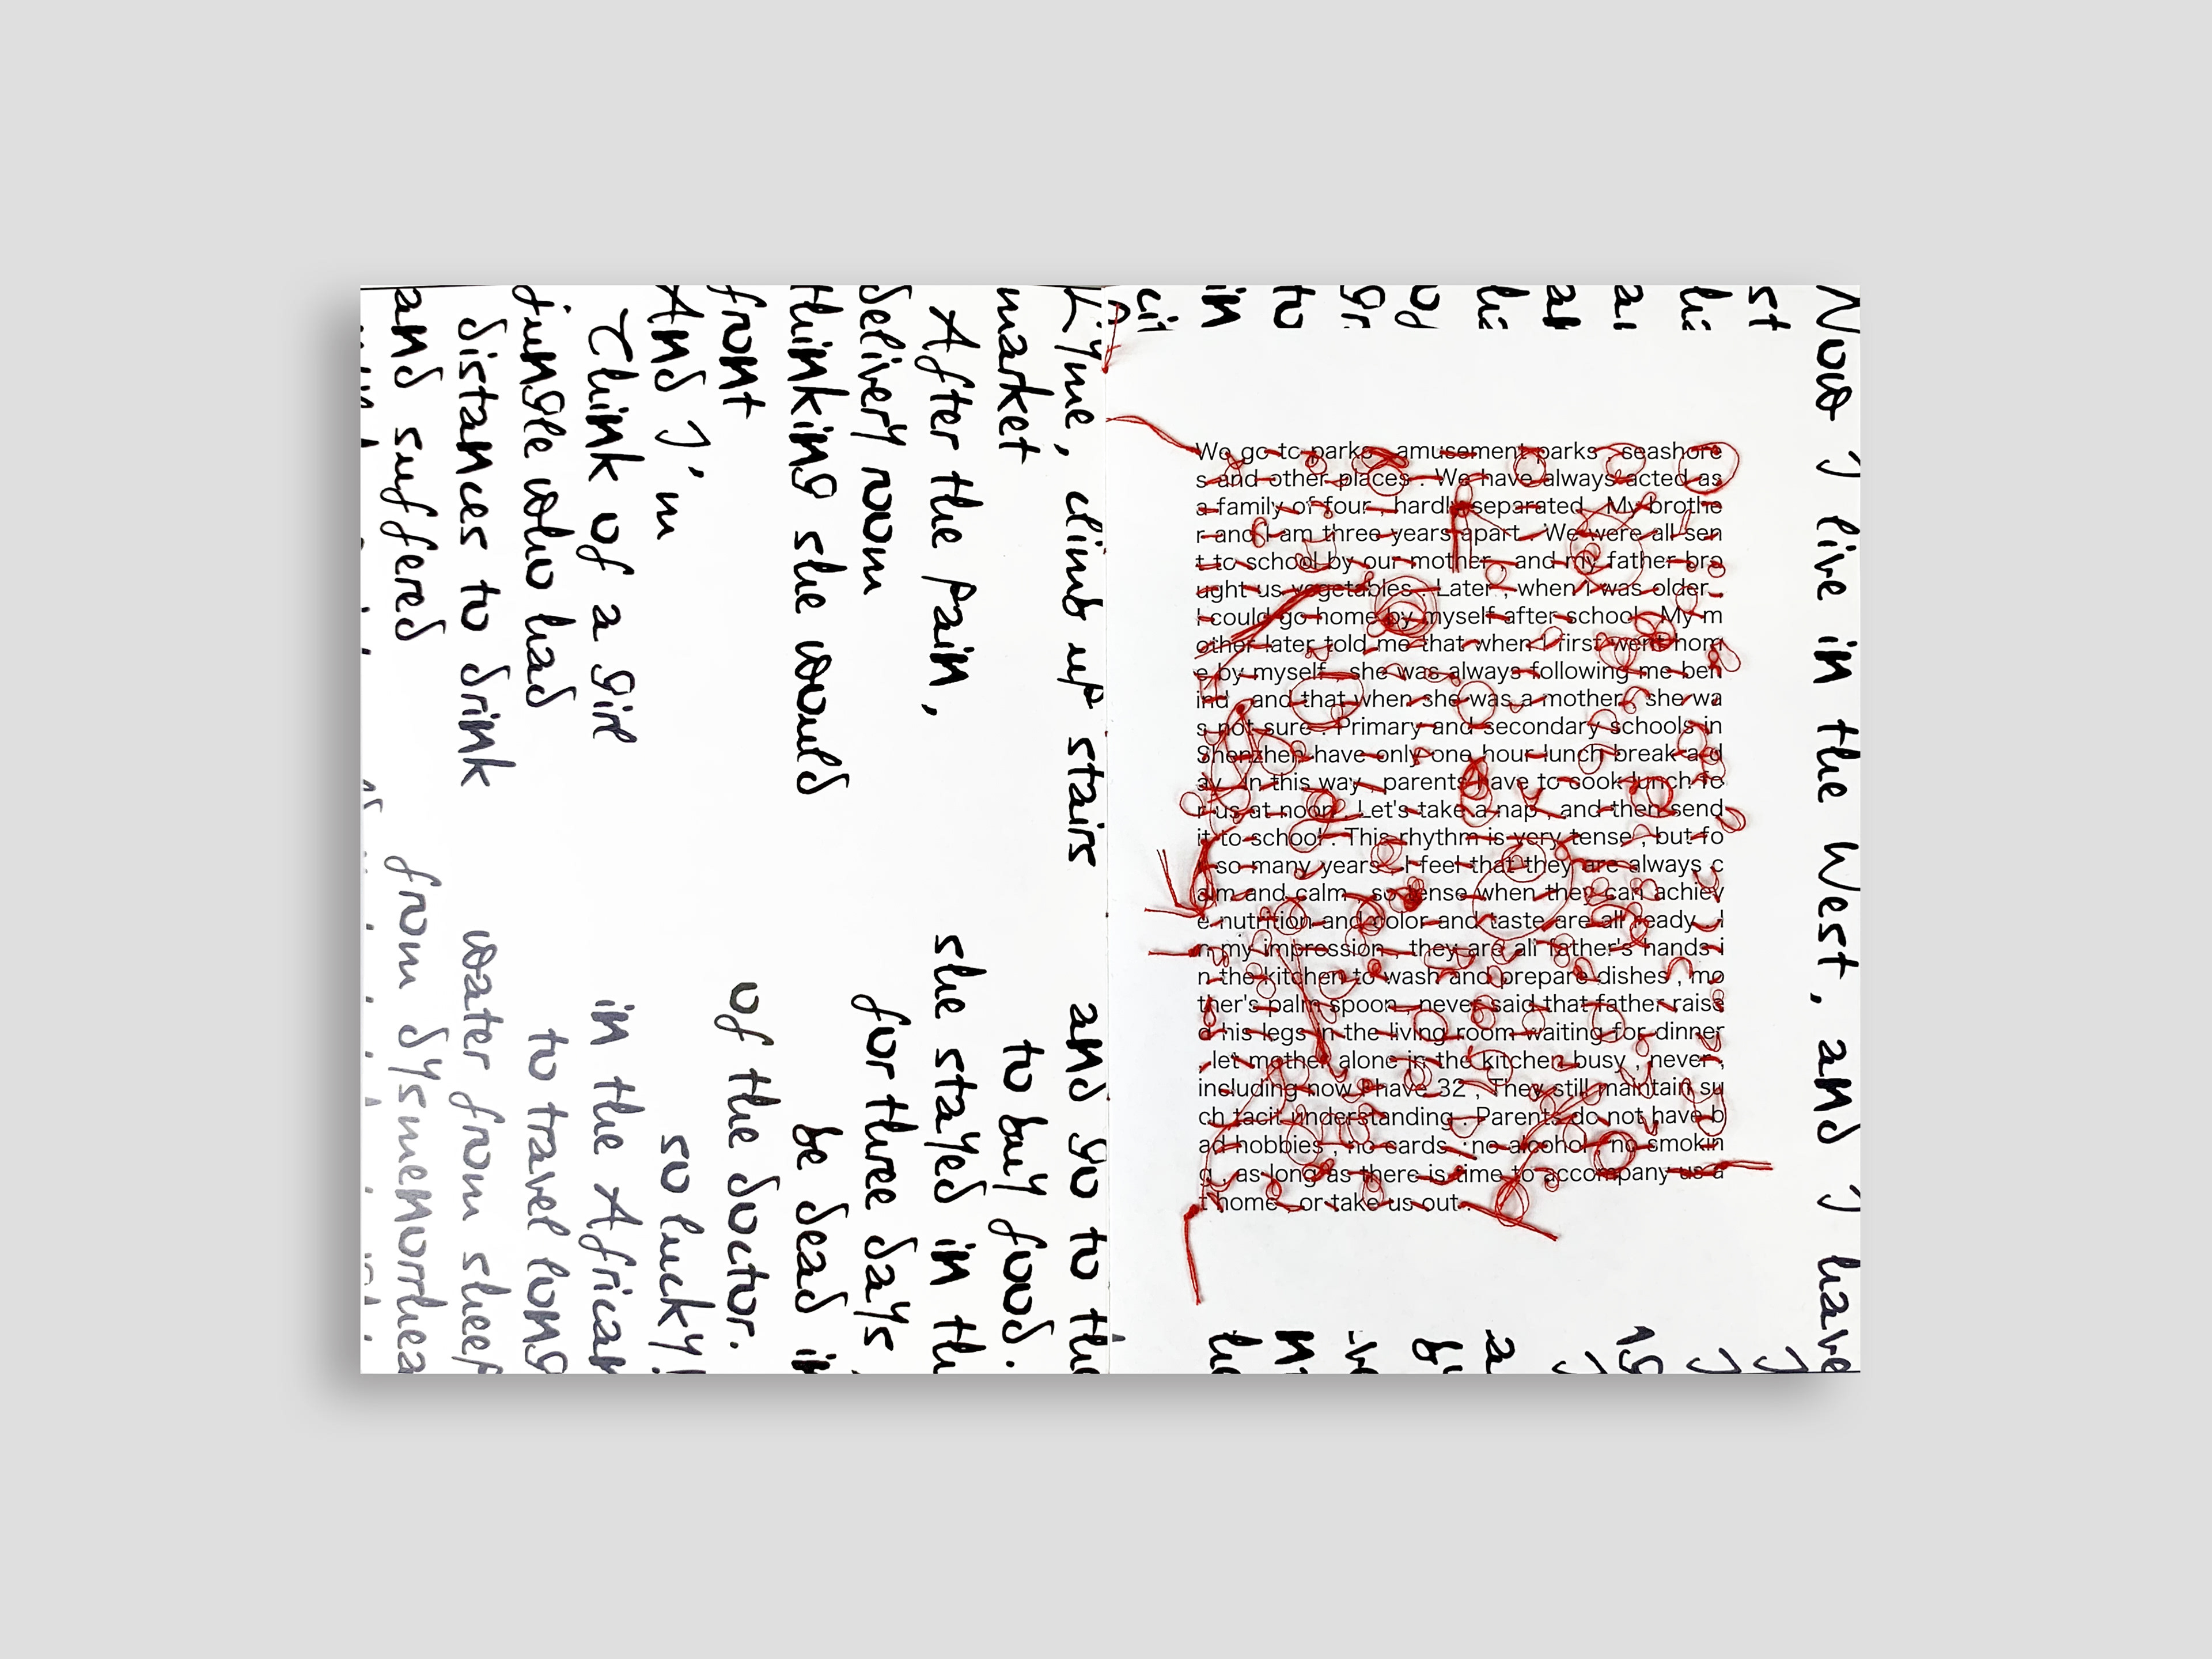 Now I live in the West, and I have
climb up stairs and go to the
market to buy food.
After the pain, she stayed in the
delivery room for three days,
thinking she would be dead in
front of the doctor.
And I'm so lucky!
Think of a girl in the African
jungle who had to travel long
distances to drink water from sheep
and suffered from dysmenorrhea
We go to parks , amusement parks , seashore
s and other places . We have always acted as
a family of four , hardly separated . My brothe
r and I am three years apart . We were all sen
t to school by our mother , and my father bro
ught us vegetables . Later , when I was older ,
I could go home by myself after school . My m
other later told me that when I first went hom
e by myself , she was always following me beh
ind , and that when she was a mother , she wa
s not sure . Primary and secondary schools in
Shenzhen have only one hour lunch break a d
ay . In this way , parents have to cook lunch fo
r us at noon . Let's take a nap , and then send
it to school . This rhythm is very tense , but fo
r so many years , I feel that they are always c
alm and calm , so tense when they can achiev
e nutrition and color and taste are all ready . I
n my impression , they are all father's hands i
n the kitchen to wash and prepare dishes , mo
ther's palm spoon , never said that father raise
d his legs in the living room waiting for dinner
, let mother alone in the kitchen busy , never ,
including now I have 32 , They still maintain su
ch tacit understanding . Parents do not have b
ad hobbies , no cards , no alcohol , no smokin
g , as long as there is time to accompany us a
t home , or take us out .